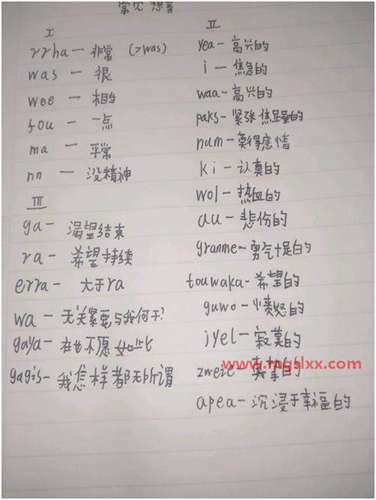 常见想音
I
rrha — 非常 (>was)
was — 很
wee — 相当
fou — 一点
ma — 平常
nn — 没精神
III
ga — 渴望结束
ra — 希望持续
erra — 大于ra
wa — 无关紧要与我何干?
gaya — 在也不愿如此
gagis — 我怎样都无所谓
II
yea — 高兴的
i — 焦急的
waa — 高兴的
paks — 紧张焦显著的
num — 莫得感情
ki — 认真的
wol — 热血的
au — 悲伤的
granme — 勇气十足的
touwaka — 希望的
guwo — 愤怒的
iyel — 寂寞的
zweie — 真挚的
apea — 沉浸于幸福的
www.mgslxx.com